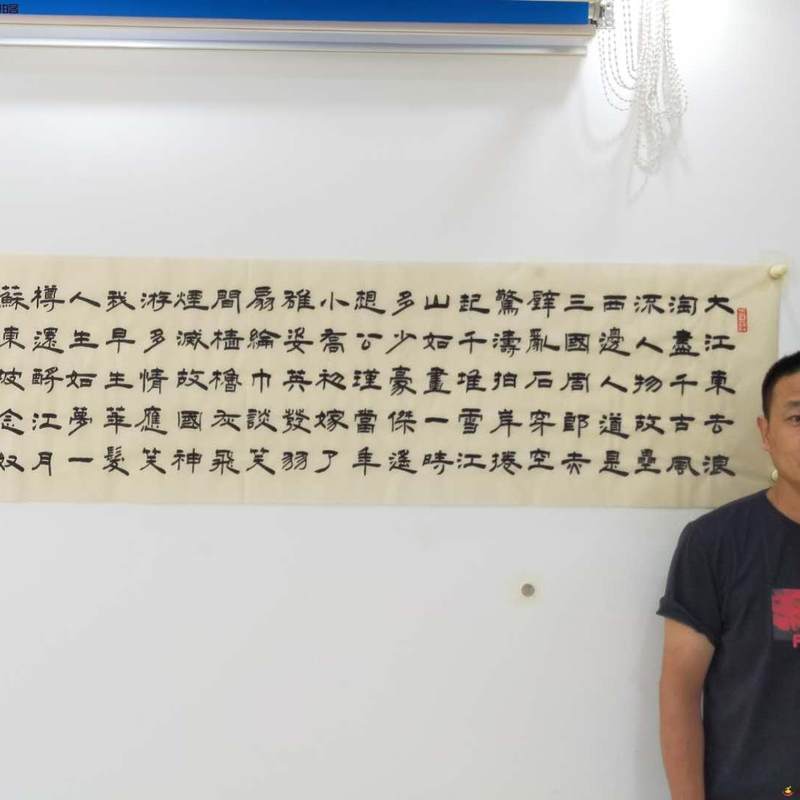 大江東去浪
淘盡千古風
流人物故壘
西邊人道是
三國周郎赤
壁亂石穿空
驚濤拍岸捲
起千堆雪江
山如畫一時
多少豪傑遙
想公瑾當年
小喬初嫁了
雄姿英發羽
扇綸巾談笑
間檣櫓灰飛
煙滅故國神
游多情應笑
我早生華髮
人生如夢一
樽還酹江月
蘇東坡念奴